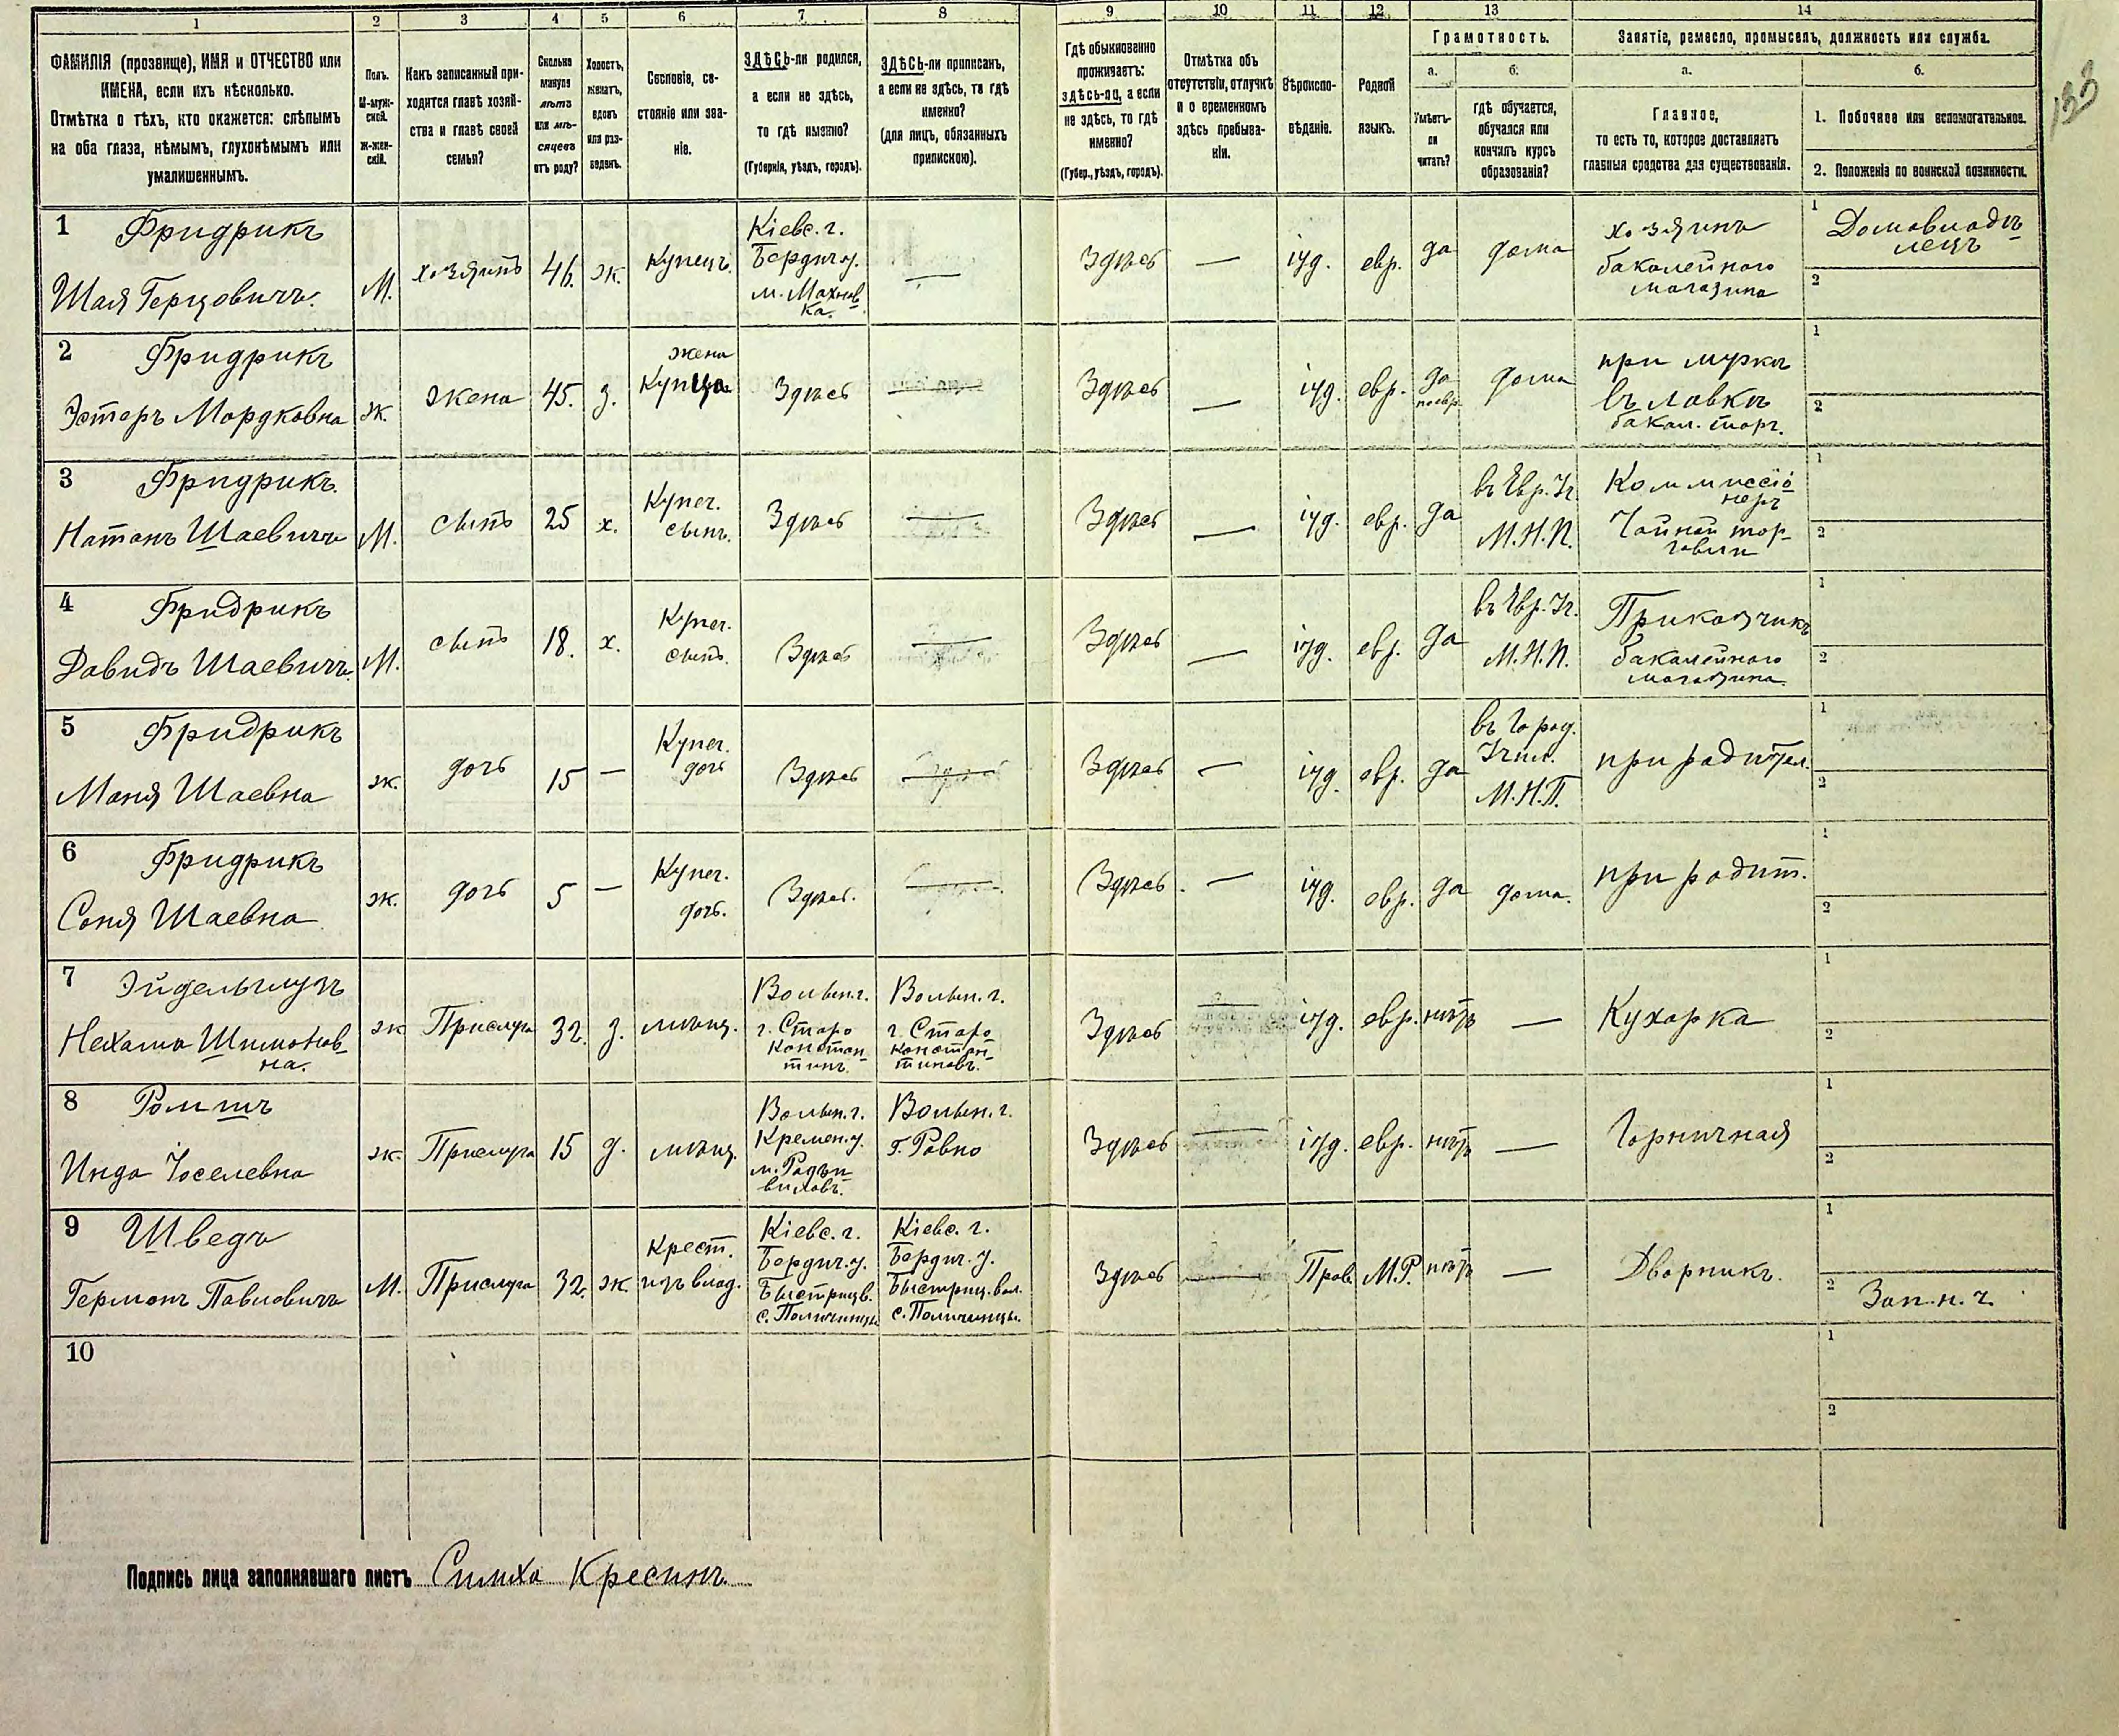 1 2 3 4 5 6 7 8 9 10 11 12 13 14
ФАМИЛІЯ (прозвище), ИМЯ и ОТЧЕСТВО или
ИМЕНА, если ихъ нѣсколько.
Отмѣтка о тѣхъ, кто окажется: слѣпымъ
на оба глаза, нѣмымъ, глухонѣмымъ или
умалишеннымъ.
Полъ.
М-муж-
ской.
Ж-жен-
скій.
Какъ записанный при-
ходится главѣ хозяй-
ства и главѣ своей
семьи?
Сколько
минуло
лѣтъ
или мѣ-
сяцевъ
отъ роду?
Холостъ,
женатъ,
вдовъ
или раз-
веденъ.
Сословіе, со-
стояніе или зва-
ніе.
ЗДѢСЬ-ли родился,
а если не здѣсь,
то гдѣ именно?
(Губернія, уѣздъ, городъ).
ЗДѢСЬ-ли приписанъ,
а если не здѣсь, то гдѣ
именно?
(для лицъ, обязанныхъ
припискою).
Гдѣ обыкновенно
проживаетъ:
здѣсь-ли, а если
не здѣсь, то гдѣ
именно?
(Губер., уѣздъ, городъ).
Отмѣтка объ
отсутствіи, отлучкѣ
и о временномъ
здѣсь пребыва-
ніи.
Вѣроиспо-
вѣданіе.
Родной
языкъ.
Грамотность.
а.
Умѣетъ-
ли
читать?
б.
гдѣ обучается,
обучался или
кончилъ курсъ
образованія?
Занятіе, ремесло, промыселъ, должность или служба.
а.
Главное,
то есть то, которое доставляетъ
главныя средства для существованія.
б.
1. Побочное или вспомогательное.
2. Положеніе по воинской повинности.
133
1 Фридрикъ
Шая Герцовичъ.
М.
хозяинъ
46.
ж.
Купецъ.
Кіевс. г.
Бердич у.
м. Махнов-
ка.
—
Здѣсь
—
іуд.
евр.
да
дома
хозяинъ
бакалейного
магазина
1 Домовладѣ-
лецъ
2
2 Фридрикъ
Эстеръ Мордковна
ж.
жена
45.
з.
жена
Купца
Здѣсь
—
Здѣсь
—
іуд.
евр.
да
по евр.
дома
при мужѣ
въ лавкѣ
бакал. торг.
1
2
3 Фридрикъ.
Натанъ Шаевичъ
М.
сынъ
25
х.
Купеч.
сынъ.
Здѣсь
—
Здѣсь
—
іуд.
евр.
да
въ Евр. Уч.
М.Н.П.
Коммиссіо-
неръ
Чайной тор-
говли
1
2
4 Фридрикъ
Давидъ Шаевичъ.
М.
сынъ
18.
х.
Купеч.
сынъ.
Здѣсь
—
Здѣсь
—
іуд.
евр.
да
въ Евр. Уч.
М.Н.П.
Приказчикъ
бакалейного
магазина.
1
2
5 Фридрикъ
Маня Шаевна
ж.
дочь
15
—
Купеч.
дочь
Здѣсь
—
Здѣсь
—
іуд.
евр.
да
въ Город.
Учил.
М.Н.П.
при родител.
1
2
6 Фридрикъ
Соня Шаевна
ж.
дочь
5
—
Купеч.
дочь.
Здѣсь.
—
Здѣсь.
—
іуд.
евр.
да
дома.
при родит.
1
2
7
Нехама Шимонов-
на.
ж
Прислуга
32.
д.
мѣщ.
Волын. г.
г. Старо
констан-
тинъ.
Волын. г.
г. Старо-
констан-
тиновъ.
Здѣсь
—
іуд.
евр.
нѣтъ
—
Кухарка
1
2
8
Инда Іоселевна
ж.
Прислуга
15
д.
мѣщ.
Волын. г.
Кремен. у.
м. Радзи-
виловъ.
Волын. г.
г. Ровно
Здѣсь
—
іуд.
евр.
нѣтъ
—
Горничная
1
2
9 Шведъ
Германъ Павловичъ
М.
Прислуга
32.
ж.
Крест.
изъ влад.
Кіевс. г.
Бердич. у.
Быстрицв.
с. Поличинцы
Кіевс. г.
Бердич. у.
Быстриц. вол.
с. Поличинцы.
Здѣсь
—
Прав.
М.Р.
нѣтъ
—
Дворникъ.
1
2 Зап. н. ч.
10
1
2
Подпись лица заполнявшаго листъ Симха Кресинъ